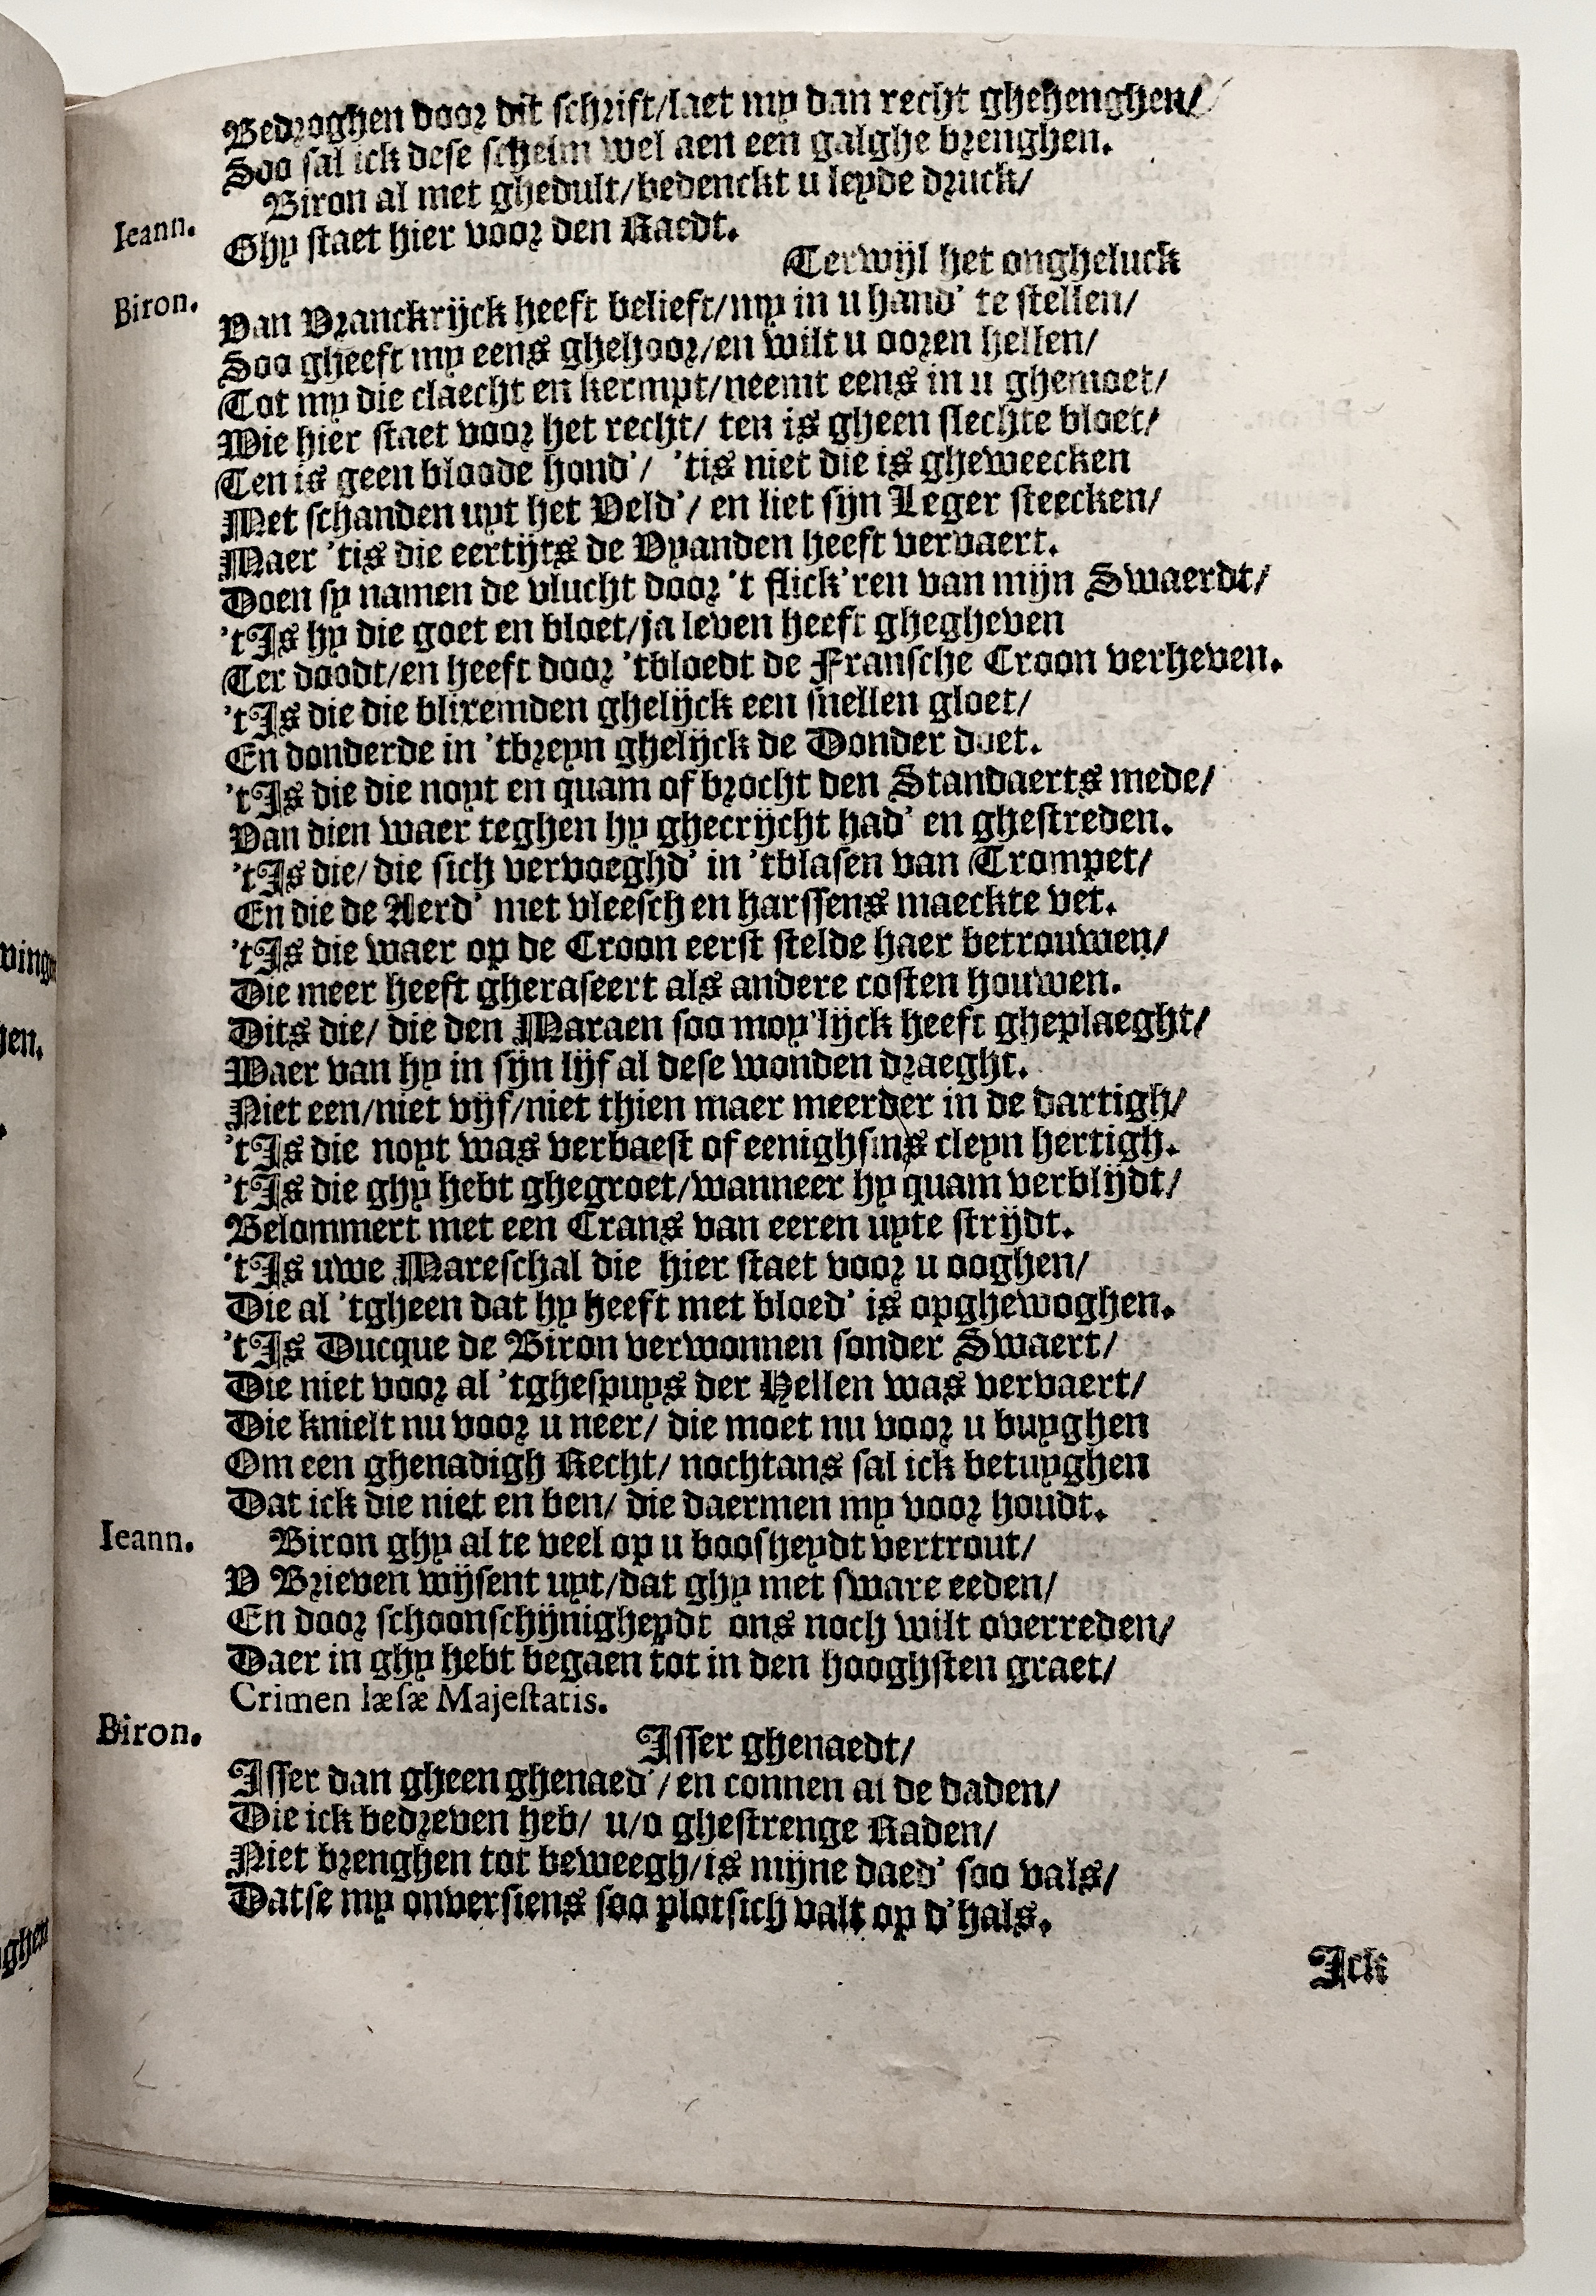 Bedroghen door dit schrift/laet my dan recht ghehenghen/
Soo sal ick dese schelm wel aen een galghe brenghen.
Ieann. Biron al met ghedult/bedenckt u leyde druck/
Ghy staet hier voor den Raedt.
Biron. Terwijl het ongheluck
Van Vranckrijck heeft belieft/my in u hand' te stellen/
Soo gheeft my eens ghehoor/en wilt u ooren hellen/
Tot my die claecht en kermpt/neemt eens in u ghemoet/
Wie hier staet voor het recht/ ten is gheen slechte bloet/
Ten is geen bloode hond'/ 'tis niet die is gheweecken
Met schanden uyt het Veld'/ en liet sijn Leger steecken/
Maer 'tis die eertijts de Vyanden heeft vervaert.
Doen sy namen de vlucht door 't flick'ren van mijn Swaerdt/
't Is hy die goet en bloet/ja leven heeft ghegheven
Ter doodt/en heeft door 'tbloedt de Fransche Croon verheven.
't Is die die blixemden ghelijck een snellen gloet/
En donderde in 'tbreyn ghelijck de Donder doet.
't Is die die noyt en quam of brocht den Standaerts mede/
Van dien waer teghen hy ghecrijcht had' en ghestreden.
't Is die/ die sich vervoeghd' in 'tblasen van Trompet/
En die de Aerd' met vleesch en harssens maeckte vet.
't Is die waer op de Croon eerst stelde haer betrouwen/
Die meer heeft gheraseert als andere costen houwen.
Dits die/ die den Maraen soo moy'lijck heeft gheplaeght/
Waer van hy in sijn lijf al dese wonden draeght.
Niet een/niet vijf/niet thien maer meerder in de dartigh/
't Is die noyt was verbaest of eenighsins cleyn hertigh.
't Is die ghy hebt ghegroet/wanneer hy quam verblijdt/
Belommert met een Crans van eeren uyte strijdt.
't Is uwe Mareschal die hier staet voor u ooghen/
Die al 'tgheen dat hy heeft met bloed' is opghewoghen.
't Is Ducque de Biron verwonnen sonder Swaert/
Die niet voor al 'tghespuys der Hellen was vervaert/
Die knielt nu voor u neer/ die moet nu voor u buyghen
Om een ghenadigh Recht/ nochtans sal ick betuyghen
Dat ick die niet en ben/ die daermen my voor houdt.
Ieann. Biron ghy al te veel op u boosheydt vertrout/
V Brieven wijsent uyt/dat ghy met sware eeden/
En door schoonschijnigheydt ons noch wilt overreden/
Daer in ghy hebt begaen tot in den hooghsten graet/
Crimen læsæ Majestatis.
Biron. Isser ghenaedt/
Isser dan gheen ghenaed'/en connen al de daden/
Die ick bedreven heb/ u/o ghestrenge Raden/
Niet brenghen tot beweegh/is mijne daed' soo vals/
Datse my onversiens soo plotsich valt op d'hals.
Ick